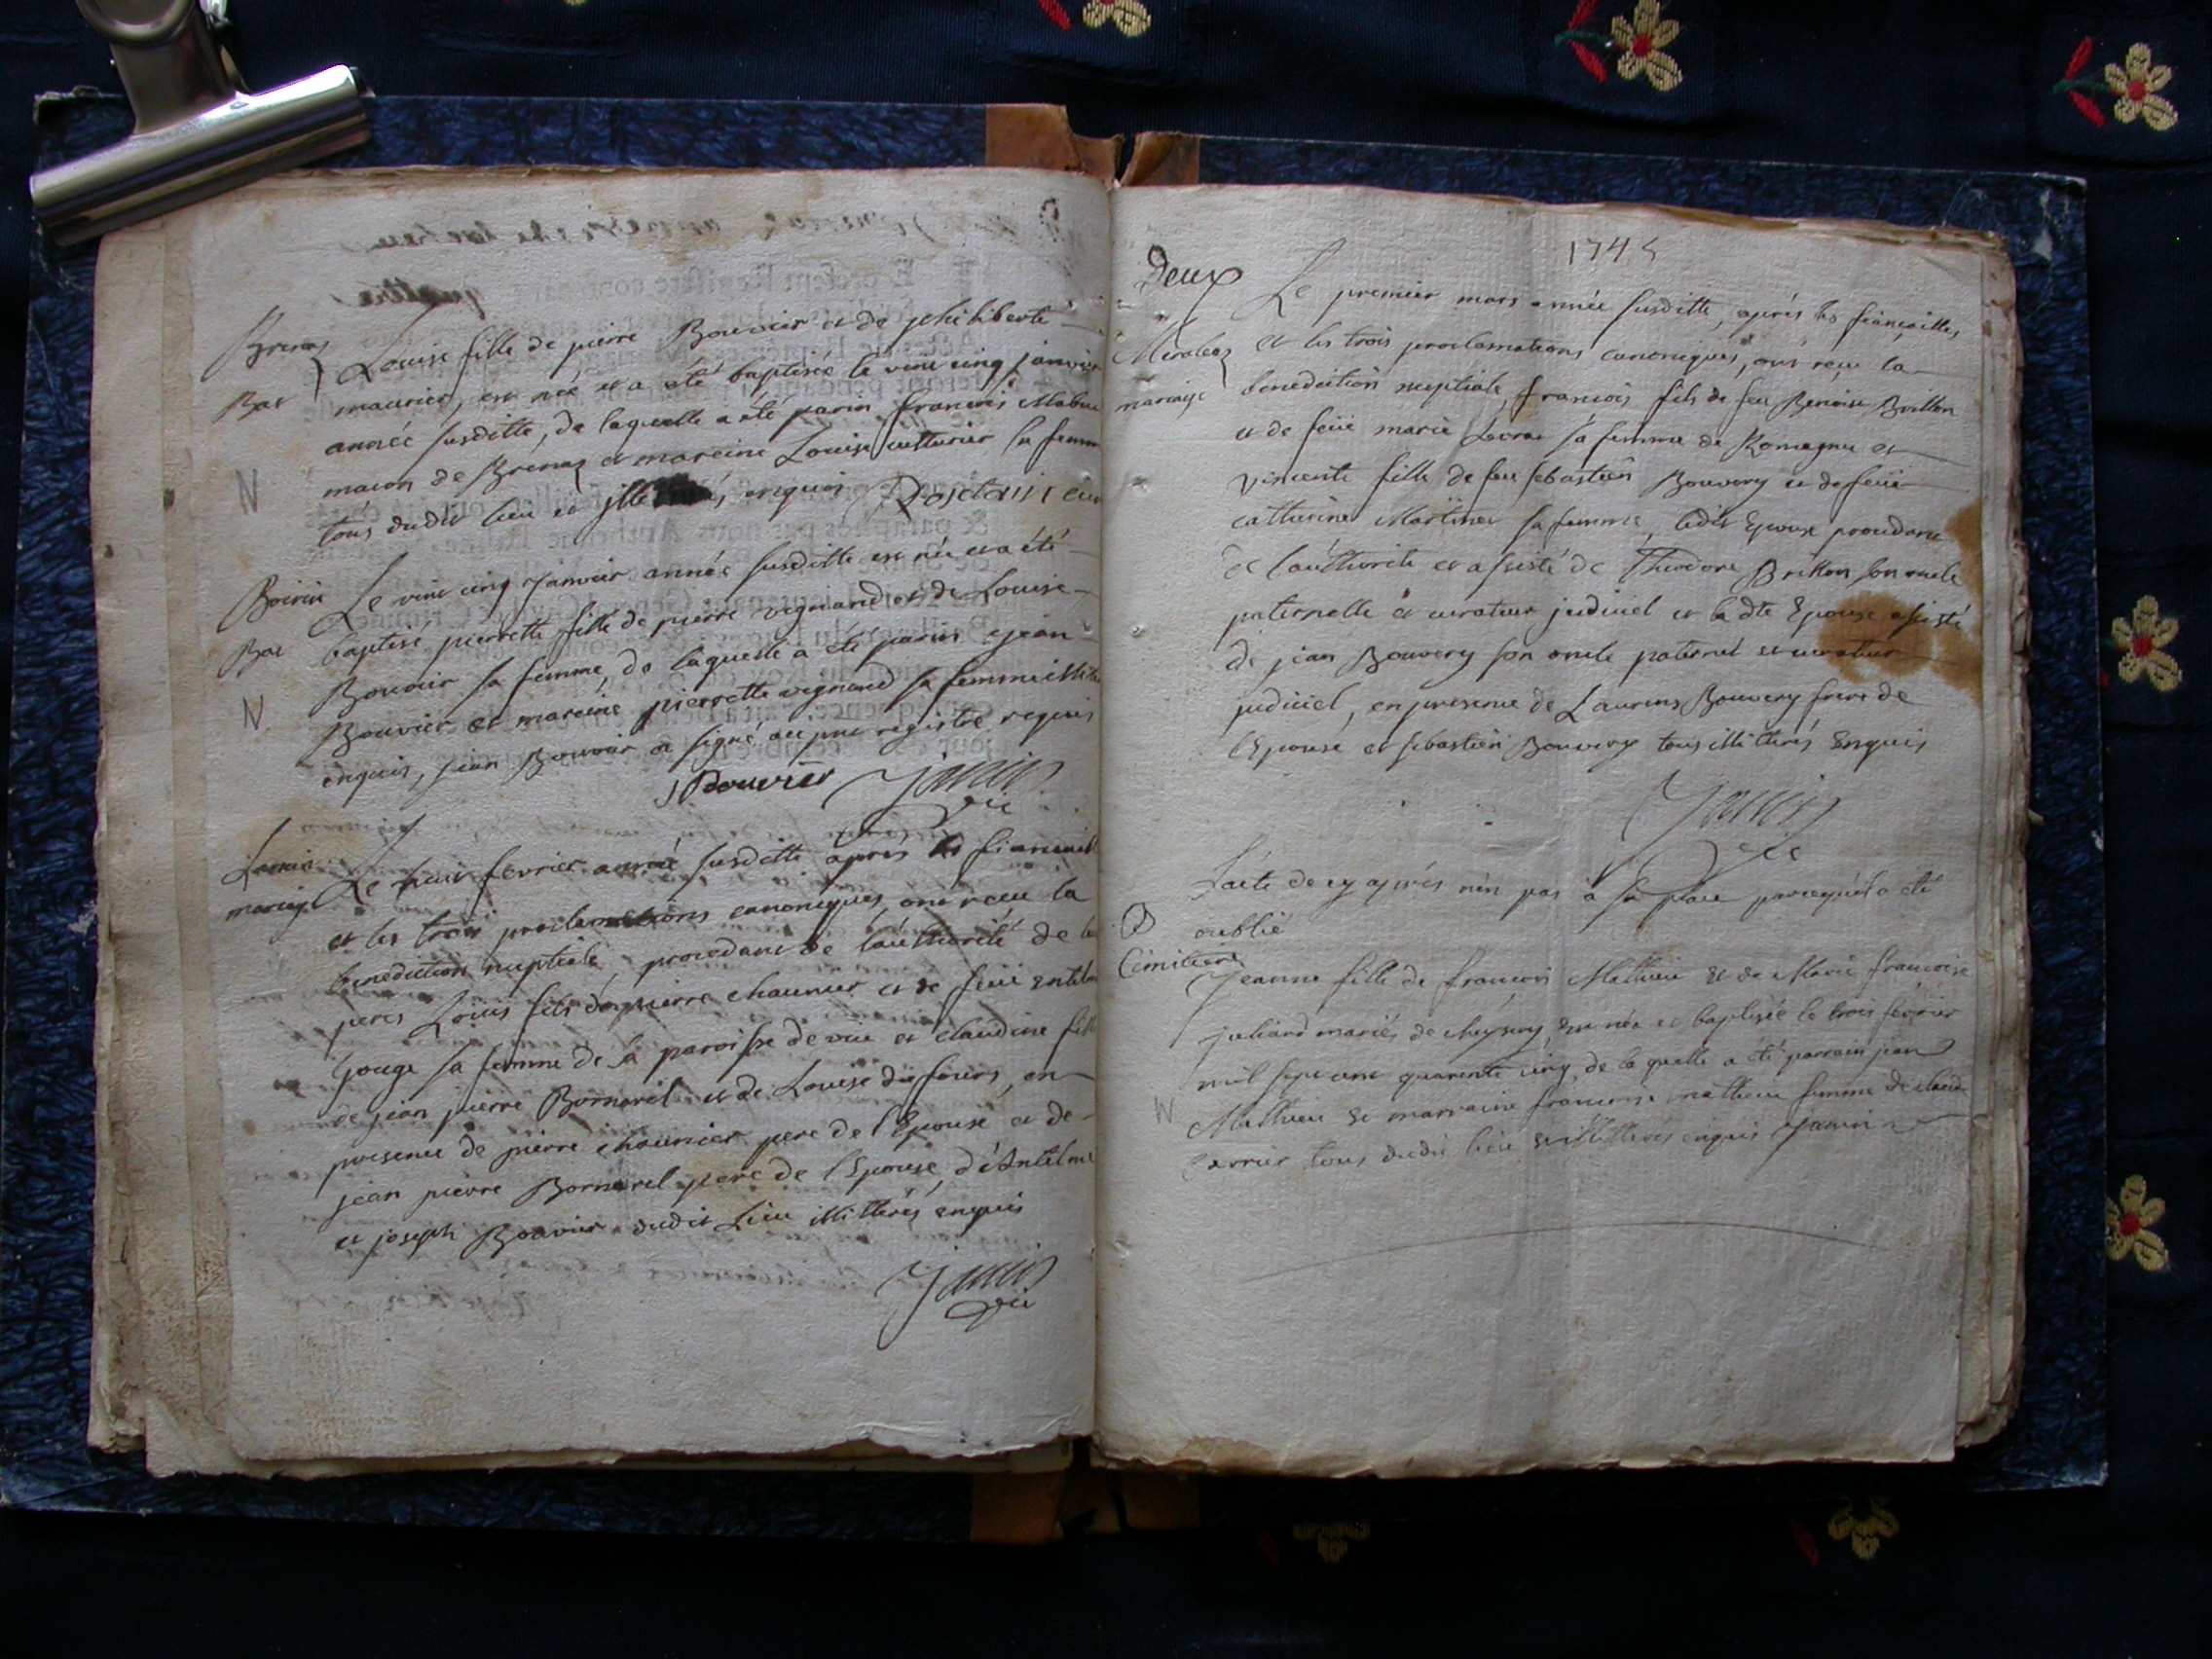 Brenaz
Bat
Louise fille de pierre Bouvier et de philiberte
maurier, est née et a été baptisée le vint cinq janvier
année susditte, de laquelle a été parin francois
macon de Brenaz et mareine Louise sa femme
tous dudit lieu et enquis
N
Boirin
Bat
Le vint cinq janvier année susditte est née et a été
baptisé pierrette fille de pierre vignand et de Louise
Bouvier sa femme, de laquelle a été parin jean
Bouvier et mareine pierrette vignand sa femme
enquis, jean Bouvier a signé au pnt registre requis
N
J Bouvier Janin
vic
mariage
Le huit fevrier année susditte après les
et les trois proclamations canoniques, ont receu la
benediction nuptiale, procedant de l'authorité de
peres Louis fils de pierre chaunier et de feüe
Gouge sa femme de la paroisse de et claudine
de jean pierre Bornarel et de Louise dufours, en
presence de pierre chaunier pere de l'Epoux et de
jean pierre Bornarel pere de l'Epouse, d'Antelme
et joseph Bouvier dudit Lieu illitterés enquis
Janin
vic
1745
Deux
mariage
Le premier mars année susditte, après les fiançailles,
et les trois proclamations canoniques, ont receu la
benediction nuptiale, françois fils de feu Benoist Brillon
et de feüe marie sa femme de Romagnu et
vincente fille de feu sebastien Bouvery et de feüe
catherine Martinet sa femme, ledit Epoux procedant
de l'authorité et assisté de Theodore Brillon son oncle
paternelle et curateur judiciel et la dte Epouse assisté
de jean Bouvery son oncle paternel et curateur
judiciel, en presence de Laurens Bouvery frere de
l'Epouse et sebastien Bouvery tous illitterés Enquis
Janin
vic
L'acte de cy après n'est pas à sa place parcequ'il a été
oublié
Cimitiere
Jeanne fille de francois Mathieu et de Marie francoise
juliard mariés de est née et baptisée le trois février
mil sept cent quarente cinq, de la quelle a été parrain jean
Mathieu et marraine francoise mathieu femme de claude
tous dudit lieu et illitterés enquis Janin
N